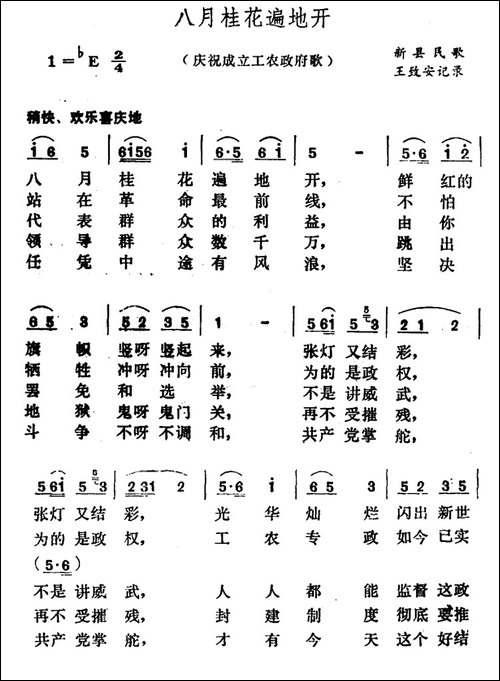 八月桂花遍地开
1=♭E 2/4
（庆祝成立工农政府歌）
新县民歌
王致安记录
稍快、欢乐喜庆地
i 6 5 | 6i56 i | 6·5 6 i | 5 - | 5·6 i 2
八月桂花遍地开，鲜红的
站在革命最前线，不怕
代表群众的利益，由你
领导群众数千万，跳出
任凭中途有风浪，坚决
6 5 3 | 5 5 2 3 5 | 1 - | 5 6i 5 3 | 2 1 2
旗帜竖呀竖起来，张灯又结彩，
牺牲冲呀冲向前，为的是政权，
罢免和选举，不是讲威武，
地狱鬼呀鬼门关，再不受摧残，
斗争不呀不调和，共产党掌舵，
5 6i 5 3 | 2 31 2 | 5·6 i | 6 5 3 | 5 6 i 5 3
张灯又结彩，光华灿烂闪出新世
为的是政权，工农专政如今已实
(5·6)
不是讲威武，人人都能监督这政
再不受摧残，封建制度彻底要推
共产党掌舵，才有今天这个好结